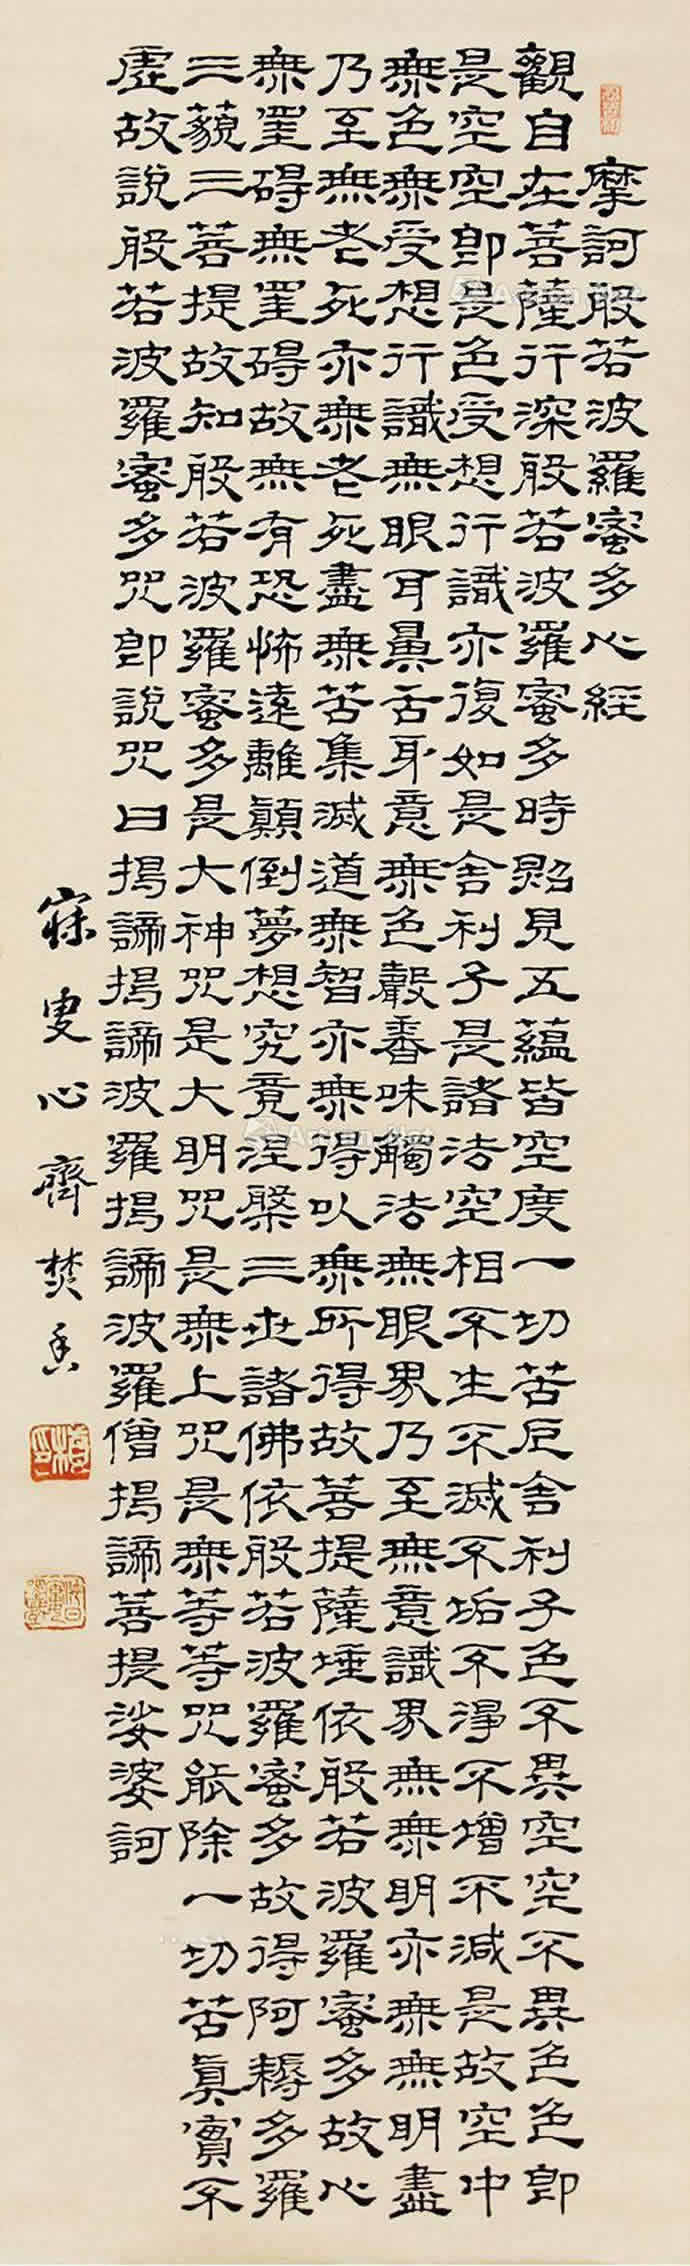 摩訶般若波羅蜜多心經
觀自在菩薩行深般若波羅蜜多時照見五蘊皆空度一切苦厄舍利子色不異空空不異色色即
是空空即是色受想行識亦復如是舍利子是諸法空相不生不滅不垢不淨不增不減是故空中
無色無受想行識無眼耳鼻舌身意無色聲香味觸法無眼界乃至無意識界無無明亦無無明盡
乃至無老死亦無老死盡無苦集滅道無智亦無得以無所得故菩提薩埵依般若波羅蜜多故心
無罣碍無罣碍故無有恐怖遠離顛倒夢想究竟涅槃三世諸佛依般若波羅蜜多故得阿耨多羅
三藐三菩提故知般若波羅蜜多是大神咒是大明咒是無上咒是無等等咒能除一切苦眞實不
虛故說般若波羅蜜多咒即說咒曰揭諦揭諦波羅揭諦波羅僧揭諦菩提娑婆訶
寐叟心齊焚香
Artron.Net
Artron.Net